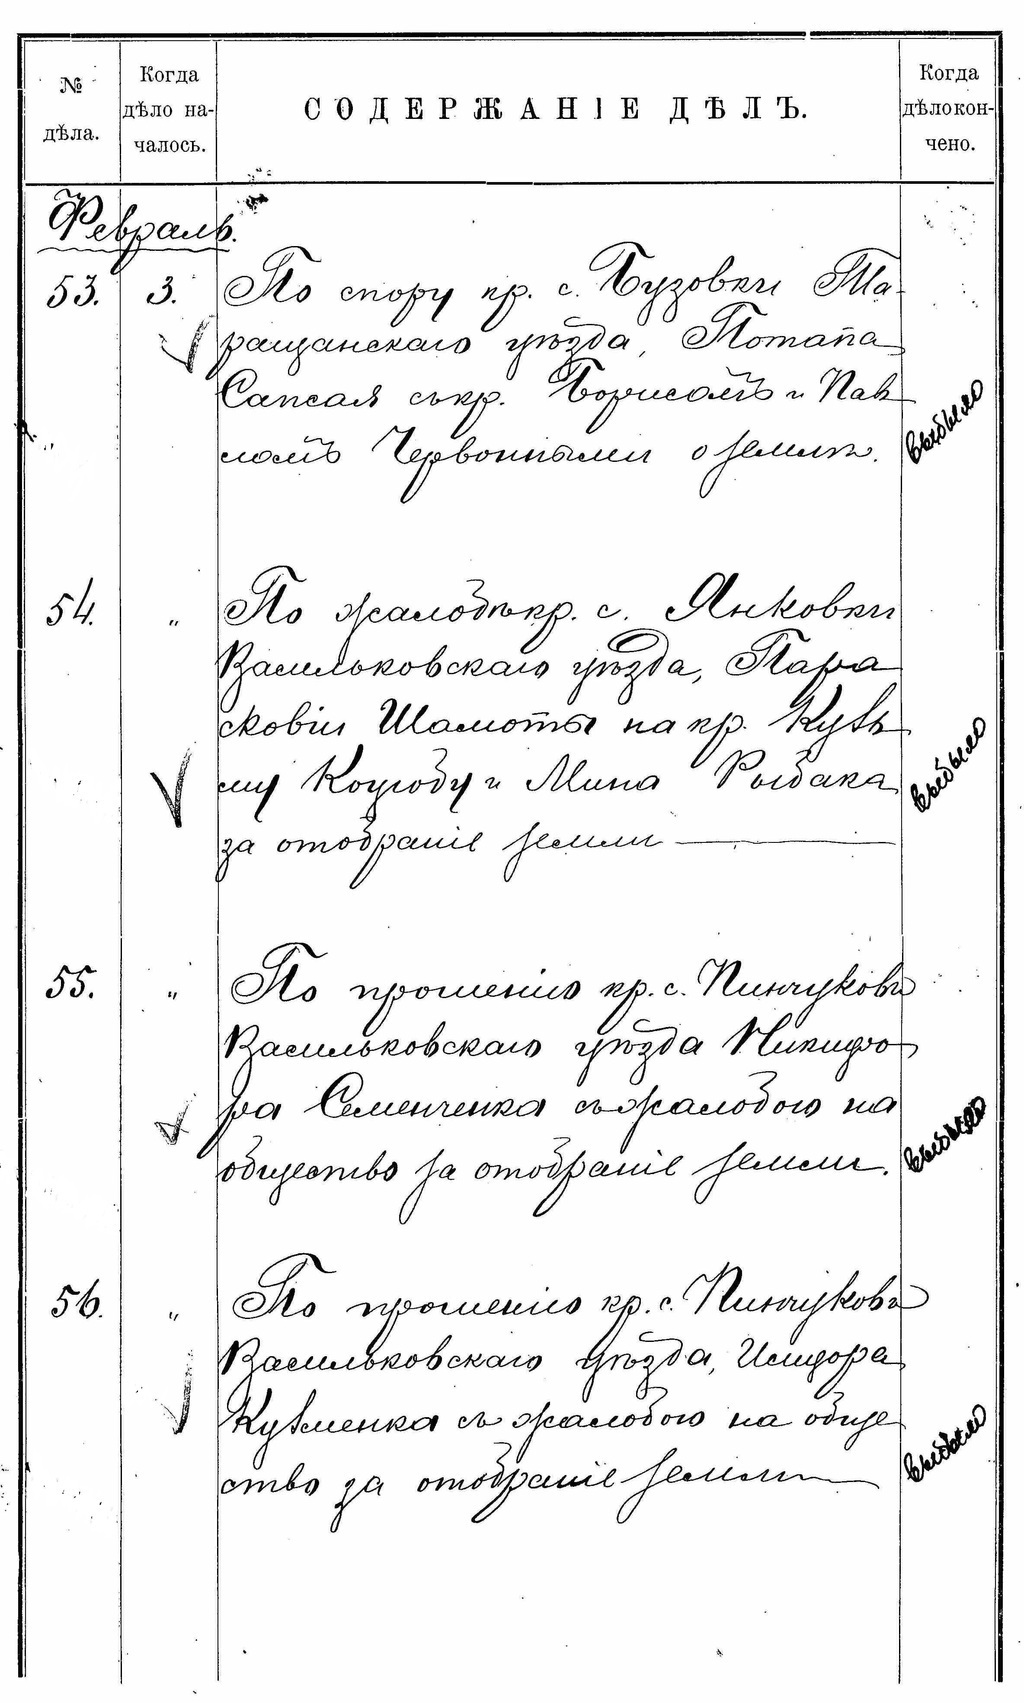 № дѣла.
Когда дѣло на-
чалось.
СОДЕРЖАНІЕ ДѢЛЪ.
Когда дѣло кон-
чено.
Февраль.
53. 3. По спору кр. с. Бузовки Та-
ращанскаго уѣзда, Потапа
Сапсая съ кр. Борисомъ и Пав
ломъ Червонными о землѣ. выбыло
54. „ По жалобѣ кр. с. Янковки
Васильковскаго уѣзда, Пара
сковіи Шамоты на кр. Кузь
му Коцюбу и Мина Рыбака
за отобраніе земли выбыло
55. „ По прошенію кр. с. Пинчуковъ
Васильковскаго уѣзда Никифо
ра Семенченка съ жалобою на
общество за отобраніе земли. выбыло
56. „ По прошенію кр. с. Пинчуковъ
Васильковскаго уѣзда, Исидора
Кузменка съ жалобою на обще
ство за отобраніе земли выбыло